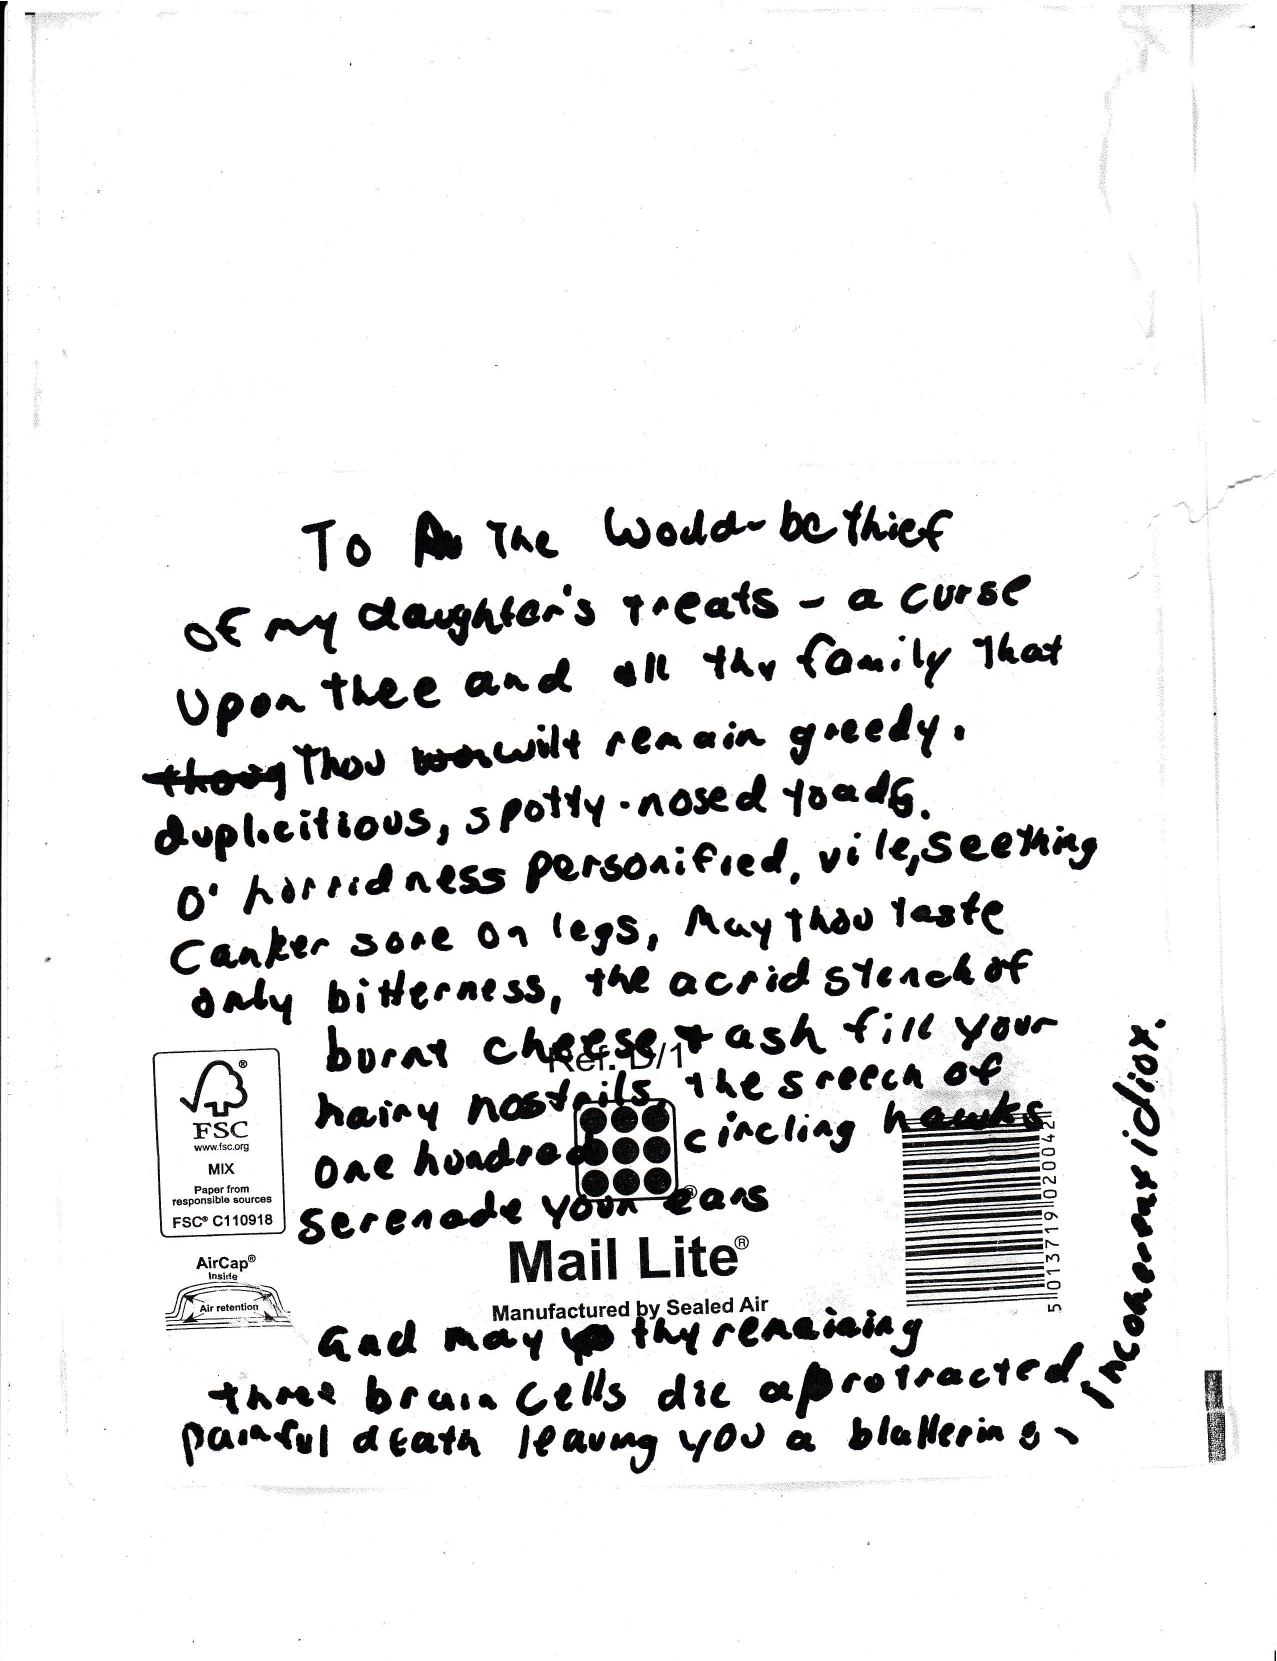 To The Would-be thief
of my daughter's treats - a curse
Upon thee and all thy family that
thoug Thou wilt remain greedy,
duplicitious, spotty-nosed toads.
O' horridness personified, vile, seething
Canker sore on legs, May thou taste
only bitterness, the acrid stench of
burnt cheese + ash fill your
Ref. D/1
hairy nostrils, the sreech of
one hundred circling hawks
serenade your ears
FSC
www.fsc.org
MIX
Paper from
responsible sources
FSC® C110918
AirCap®
Inside
Air retention
Mail Lite®
Manufactured by Sealed Air
5 013719 020042
and may thy remaining
three brain cells die a protracted,
painful death leaving you a blattering
incoherent idiot.